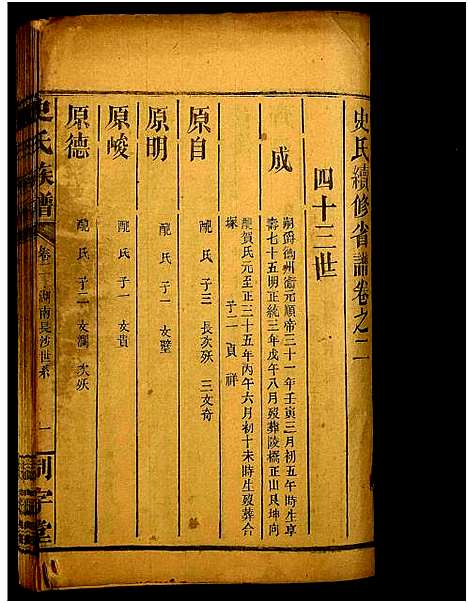 史氏續修省譜卷之二
四十三世
成
嗣爵衛州衛元順帝三十一年壬寅三月初五午時生享
壽七十五明正統三年戊午八月歿葬陵橋正山艮坤向
醜賀氏元至正三十五年丙午六月初十未時生歿葬合
塚 子二 貞 祥
原自
醜 氏 子三 長次歿 三文奇
原明
醜 氏 子一 文璧
原峻
醜 氏 子一 文貴
原德
醜 氏 子二 文瀾 次歿
史氏族譜 卷二 湖南長沙世系 一